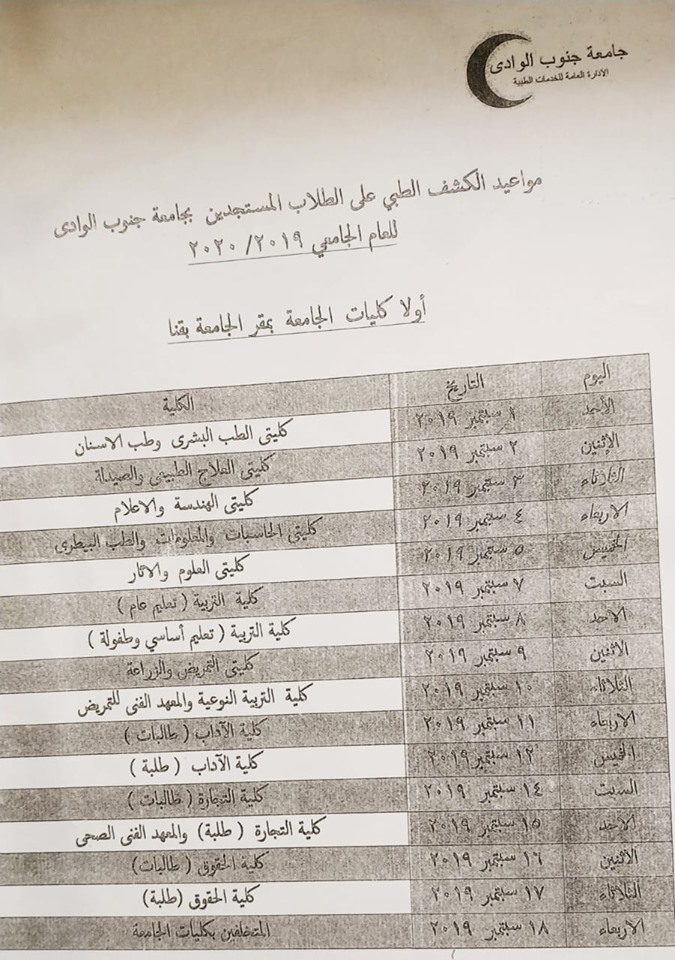 جامعة جنوب الوادى
الادارة العامة للخدمات الطبية
مواعيد الكشف الطبي على الطلاب المستجدين بجامعة جنوب الوادى
للعام الجامعي ٢٠١٩/ ٢٠٢٠
أولا كليات الجامعة بمقر الجامعة بقنا
اليوم التاريخ الكلية
الأحد ١ سبتمبر ٢٠١٩ كليتى الطب البشرى وطب الاسنان
الإثنين ٢ سبتمبر ٢٠١٩ كليتى العلاج الطبيعى والصيدلة
الثلاثاء ٣ سبتمبر ٢٠١٩ كليتى الهندسة والاعلام
الاربعاء ٤ سبتمبر ٢٠١٩ كليتى الحاسبات والمعلومات والطب البيطرى
الخميس ٥ سبتمبر ٢٠١٩ كليتى العلوم والاثار
السبت ٧ سبتمبر ٢٠١٩ كلية التربية ( تعليم عام )
الاحد ٨ سبتمبر ٢٠١٩ كلية التربية ( تعليم أساسي وطفولة )
الاثنين ٩ سبتمبر ٢٠١٩ كليتى التمريض والزراعة
الثلاثاء ١٠ سبتمبر ٢٠١٩ كلية التربية النوعية والمعهد الفنى للتمريض
الاربعاء ١١ سبتمبر ٢٠١٩ كلية الآداب ( طالبات )
الخميس ١٢ سبتمبر ٢٠١٩ كلية الآداب ( طلبة )
السبت ١٤ سبتمبر ٢٠١٩ كلية التجارة ( طالبات )
الاحد ١٥ سبتمبر ٢٠١٩ كلية التجارة ( طلبة) والمعهد الفنى الصحى
الأثنين ١٦ سبتمبر ٢٠١٩ كلية الحقوق ( طالبات)
الثلاثاء ١٧ سبتمبر ٢٠١٩ كلية الحقوق (طلبة)
الاربعاء ١٨ سبتمبر ٢٠١٩ المتخلفين بكليات الجامعة